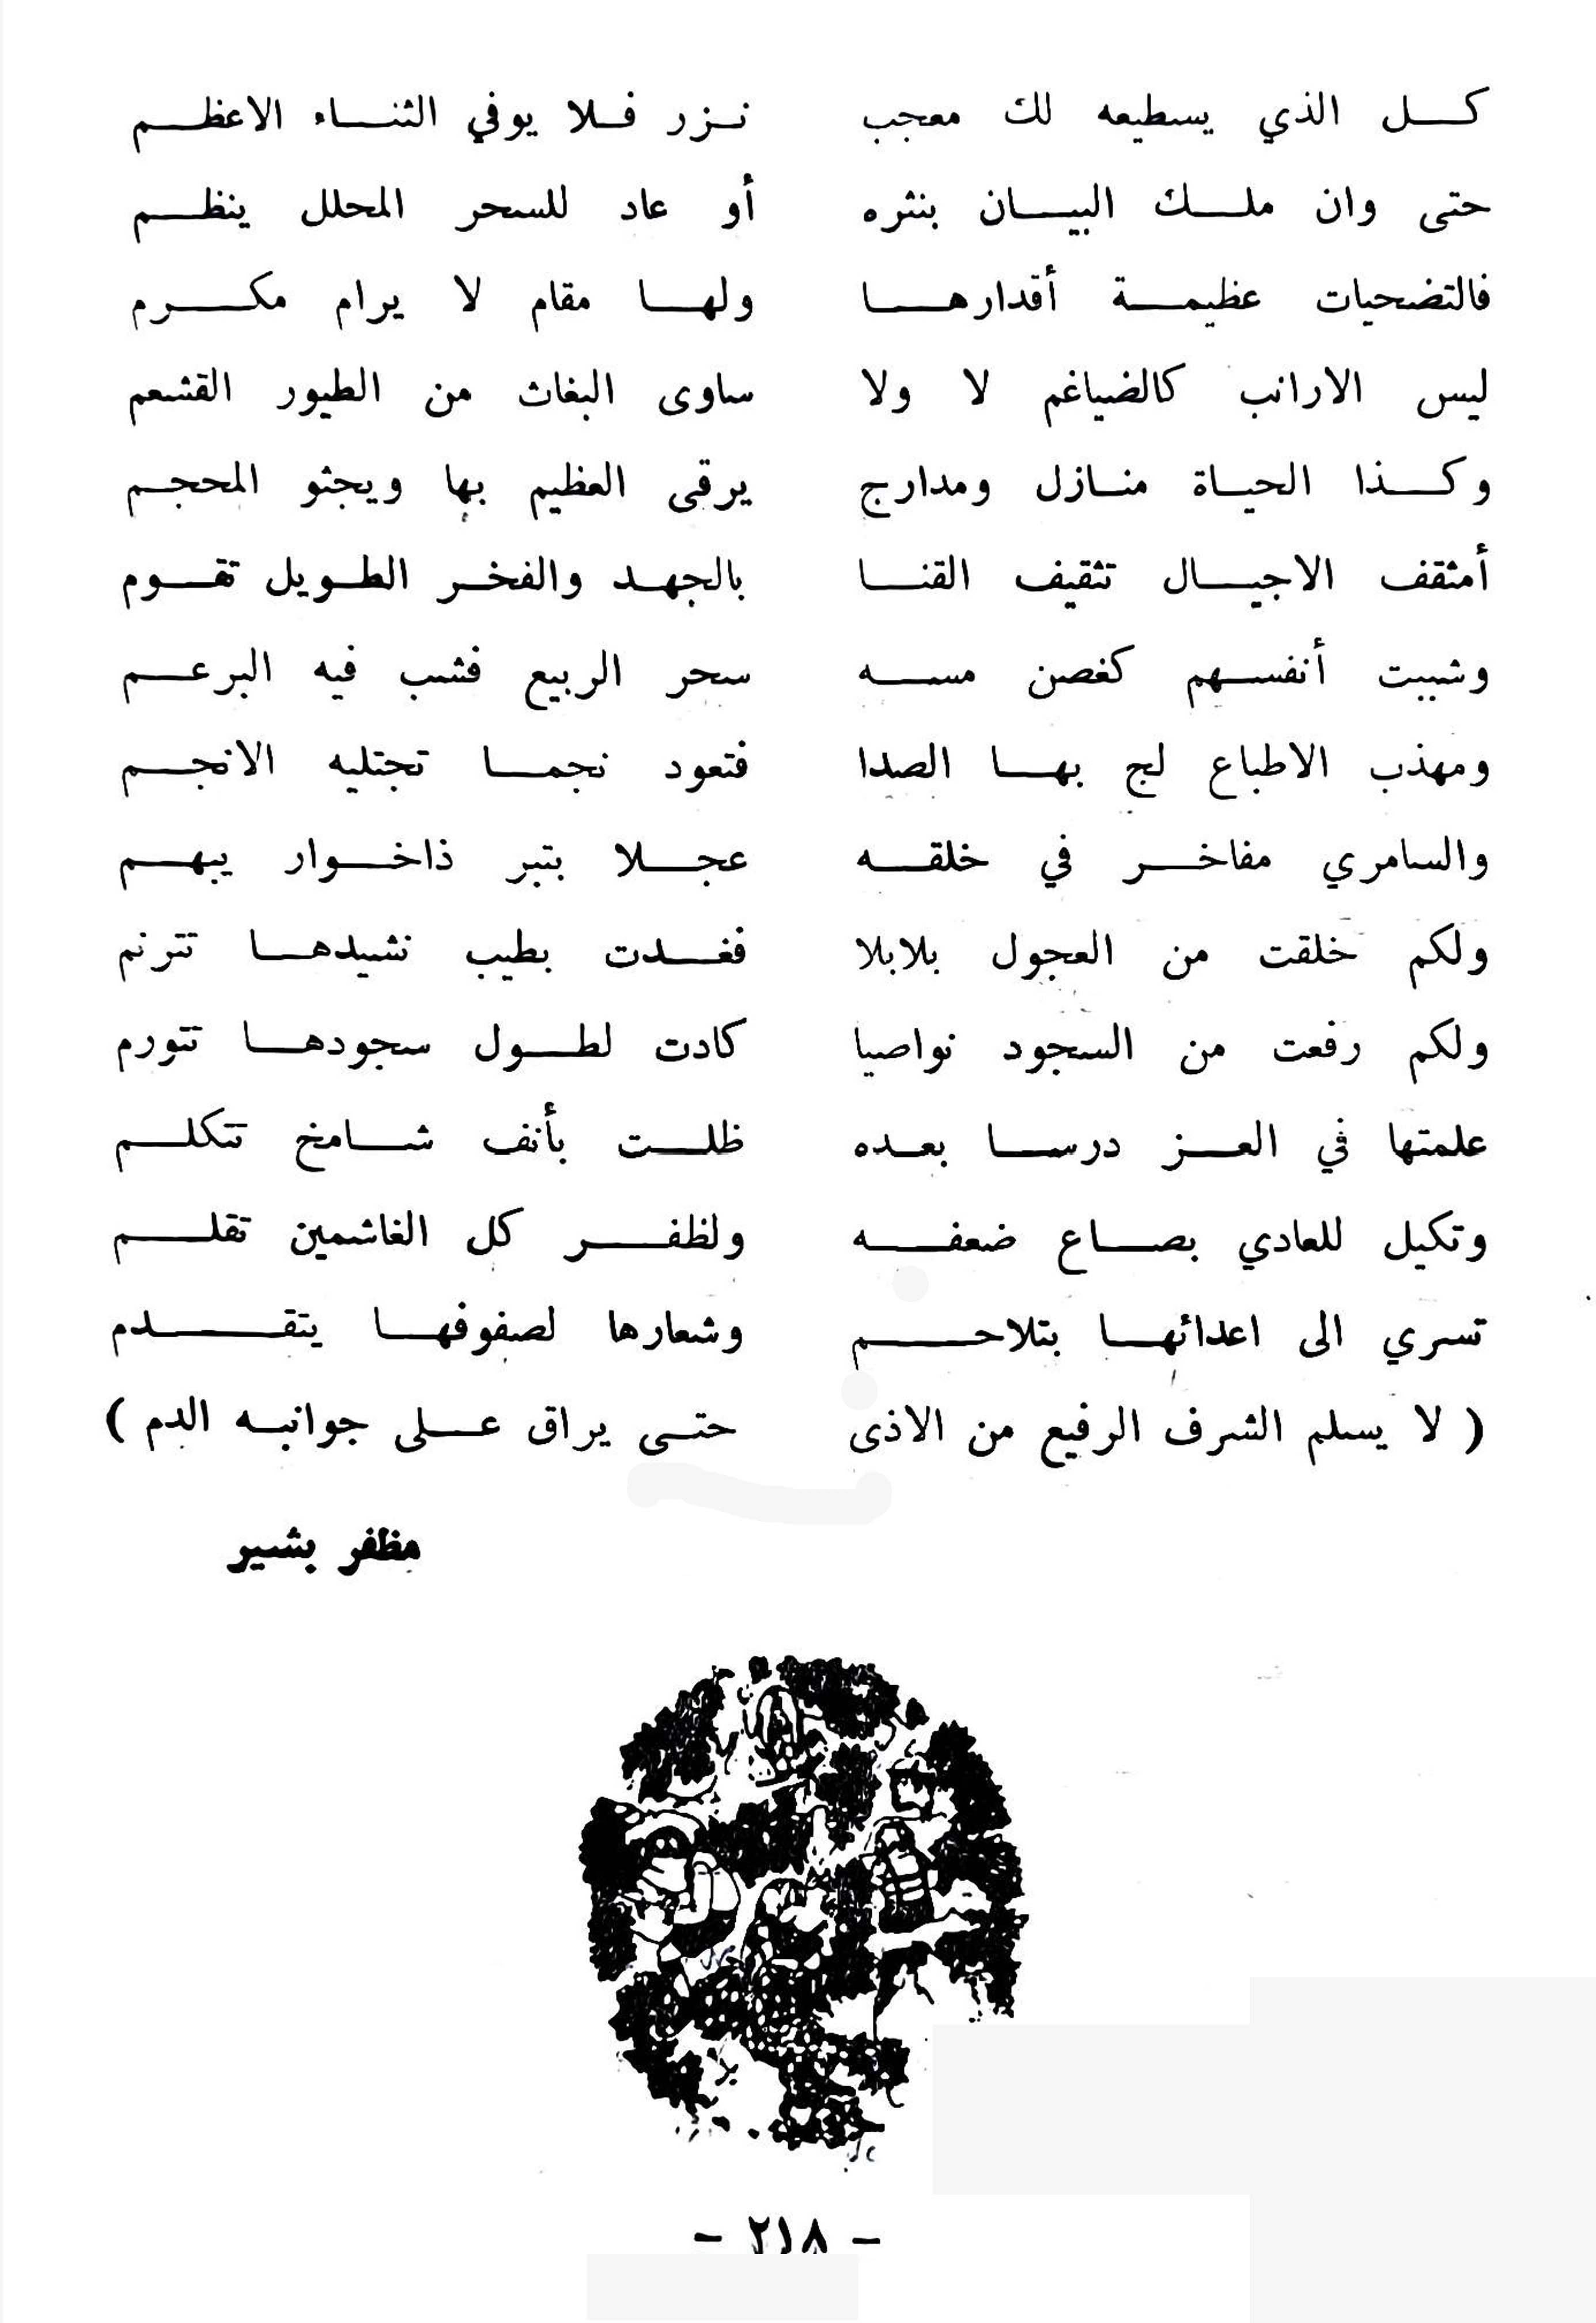 كل الذي يسطيعه لك معجب نزر فلا يوفي الثناء الاعظم
حتى وان ملك البيان بنثره أو عاد للسحر المحلل ينظم
فالتضحيات عظيمة أقدارها ولها مقام لا يرام مكرم
ليس الارانب كالضياغم لا ولا ساوى البغاث من الطيور القشعم
وكذا الحياة منازل ومدارج يرقى العظيم بها ويجثو المحجم
أمثقف الاجيال تثقيف القنا بالجهد والفخر الطويل تقوم
وشببت أنفسهم كغصن مسه سحر الربيع فشب فيه البرعم
ومهذب الاطباع لج بها الصدا فتعود نجما تجتليه الانجم
والسامري مفاخر في خلقه عجلا بتبر ذاخوار يبهم
ولكم خلقت من العجول بلابلا فغدت بطيب نشيدها تترنم
ولكم رفعت من السجود نواصيا كادت لطول سجودها تتورم
علمتها في العز درسا بعده ظلت بأنف شامخ تتكلم
وتكيل للعادي بصاع ضعفه ولظفر كل الغاشمين تقلم
تسري الى اعدائها بتلاحم وشعارها لصفوفها يتقدم
( لا يسلم الشرف الرفيع من الاذى حتى يراق على جوانبه الدم )
مظفر بشير
- ٢١٨ -